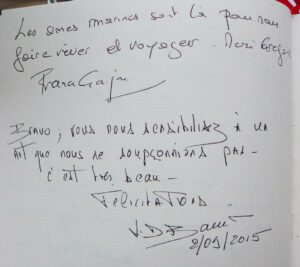 Les ames marines sont là pour nous
faire rêver et voyager. Merci
Bravo, vous nous sensibilisez à un
art que nous ne soupçonnions pas -
c'est très beau -
Félicitations
2/09/2015